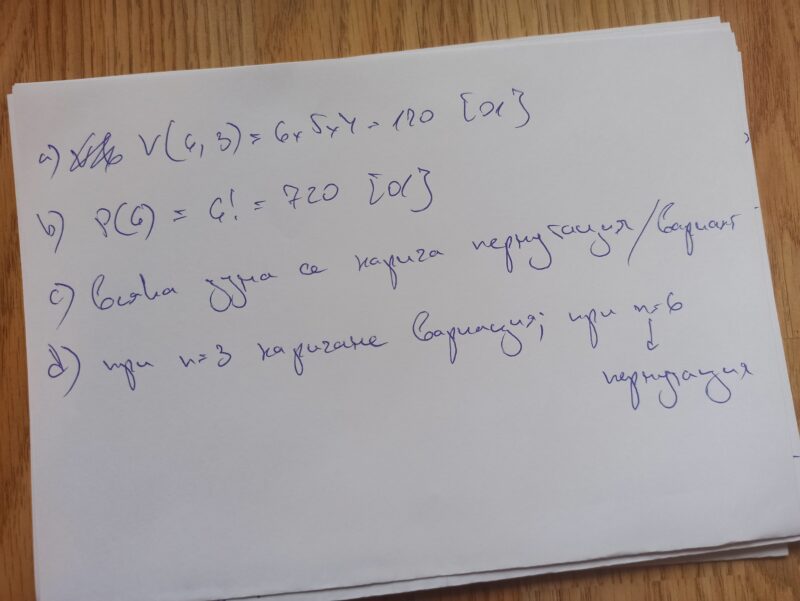 a) V(6, 3) = 6x5x4 = 120 [01}
b) P(6) = 6! = 720 [01}
c) всяка дума се нарича пермутация/вариант
d) при n=3 наричане вариация; при n=6
пермутация